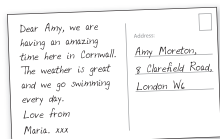 Dear Amy, we are
having an amazing
time here in Cornwall.
The weather is great
and we go swimming
every day.
Love from
Maria. xxx
Address
Amy Moreton,
8 Clarefield Road,
London W6